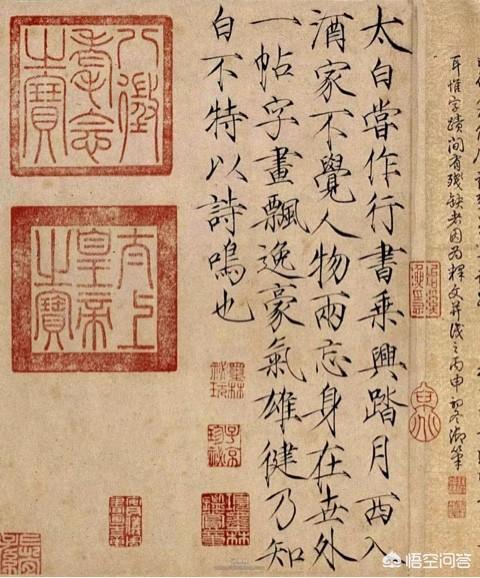 耳惟字蹟間有殘缺者因為釋文并識之丙申初冬御筆
太白嘗作行書乘興踏月西入
酒家不覺人物兩忘身在世外
一帖字畫飄逸豪氣雄健乃知
白不特以詩鳴也
八徵耄念之寶
太上皇帝之寶
墨林祕玩
子京珍祕
悟空问答